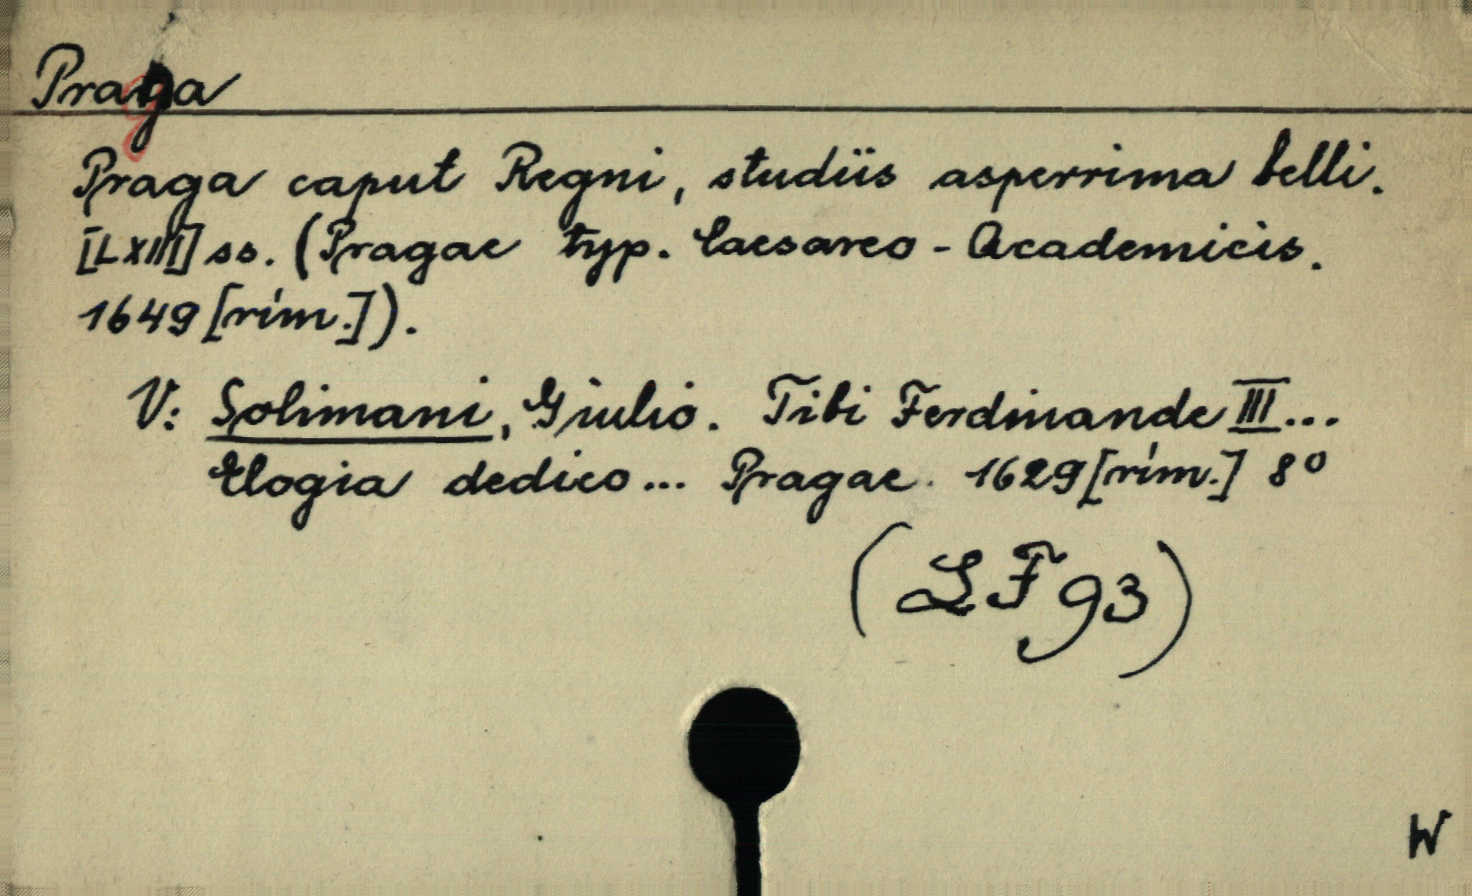 Praga
Praga caput Regni, studiis asperrima belli.
[LXIII] ss. (Pragae typ. Caesareo - Academicis.
1649 [rím.]).
V: Solimani, Giulio. Tibi Ferdinande III...
Elogia dedico... Pragae. 1629 [rím.] 8°
(LF 93)
W